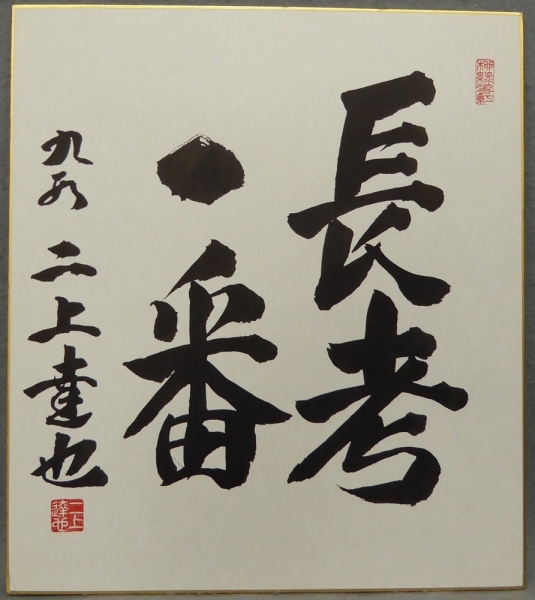 長考
一番
九段 二上達也
二上達也